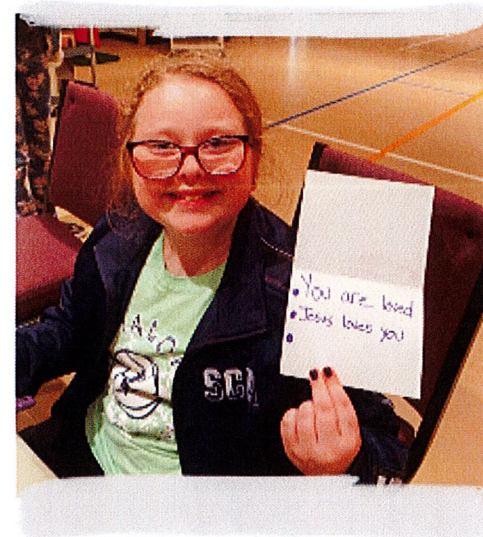 • You are loved
• Jesus loves you
•
SCA